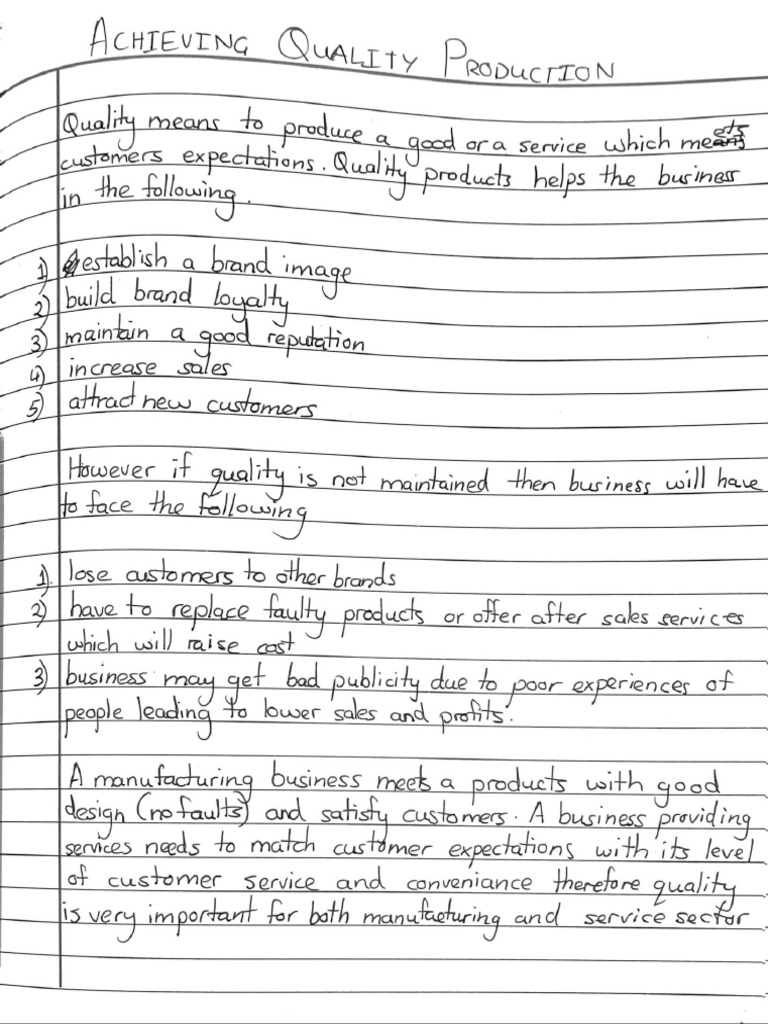 ACHIEVING QUALITY PRODUCTION
Quality means to produce a good or a service which meets
customers expectations. Quality products helps the business
in the following.
1) establish a brand image
2) build brand loyalty
3) maintain a good reputation
4) increase sales
5) attract new customers
However if quality is not maintained then business will have
to face the following
1) lose customers to other brands
2) have to replace faulty products or offer after sales services
which will raise cost
3) business may get bad publicity due to poor experiences of
people leading to lower sales and profits.
A manufacturing business meets a products with good
design (no faults) and satisfy customers. A business providing
services needs to match customer expectations with its level
of customer service and conveniance therefore quality
is very important for both manufacturing and service sector